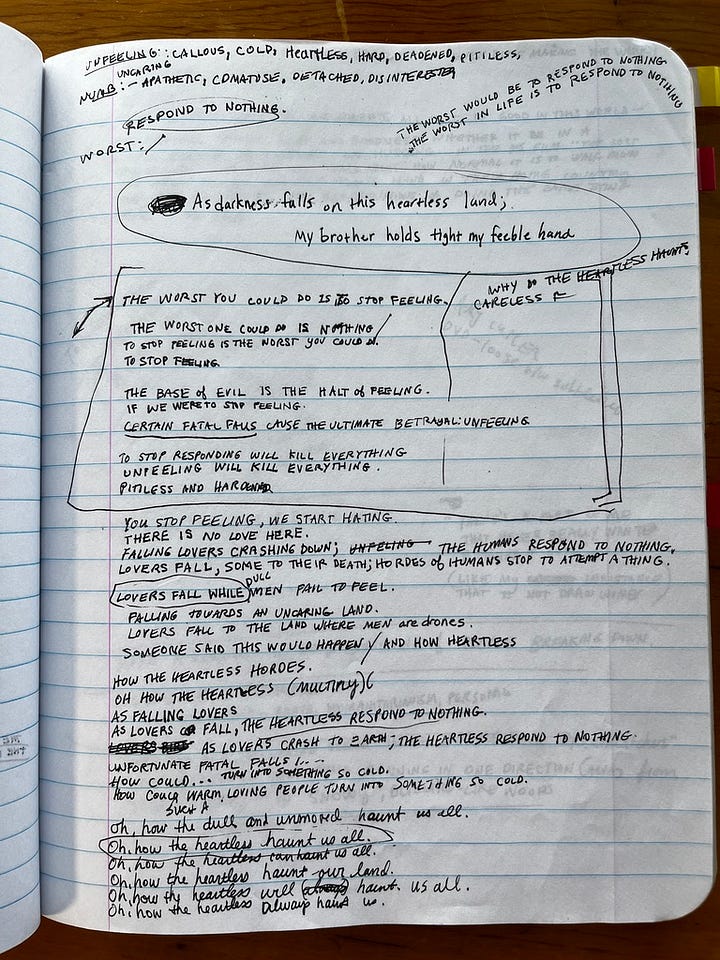 UNFEELING: CALLOUS, COLD, HEARTLESS, HARD, DEADENED, PITILESS,
UNCARING
NUMB: - APATHETIC, COMATOSE, DETACHED, DISINTERESTED
RESPOND TO NOTHING.
WORST:
THE WORST WOULD BE TO RESPOND TO NOTHING
THE WORST IN LIFE IS TO RESPOND TO NOTHING
As darkness falls on this heartless land;
My brother holds tight my feeble hand
WHY DO THE HEARTLESS HAUNT
CARELESS
THE WORST YOU COULD DO IS TO STOP FEELING.
THE WORST ONE COULD DO IS NOTHING
TO STOP FEELING IS THE WORST YOU COULD DO.
TO STOP FEELING
THE BASE of EVIL IS THE HALT of FEELING.
IF WE WERE TO STOP FEELING.
CERTAIN FATAL FALLS CAUSE THE ULTIMATE BETRAYAL: UNFEELING
TO STOP RESPONDING WILL KILL EVERYTHING
UNFEELING WILL KILL EVERYTHING.
PITILESS AND HARDENED
YOU STOP FEELING, WE START HATING.
THERE IS NO LOVE HERE.
FALLING LOVERS CRASHING DOWN; UNFEELING THE HUMANS RESPOND TO NOTHING.
LOVERS FALL, SOME TO THEIR DEATH; HORDES OF HUMANS STOP TO ATTEMPT A THING.
LOVERS FALL WHILE DULL MEN FAIL TO FEEL.
FALLING TOWARDS AN UNCARING LAND.
LOVERS FALL TO THE LAND WHERE MEN are drones.
SOMEONE SAID THIS WOULD HAPPEN / AND HOW HEARTLESS
HOW THE HEARTLESS HORDES.
OH HOW THE HEARTLESS (MULTINY)(
AS FALLING LOVERS
AS LOVERS FALL, THE HEARTLESS RESPOND TO NOTHING.
LOVERS AS LOVERS CRASH TO EARTH; THE HEARTLESS RESPOND TO NOTHING.
UNFORTUNATE FATAL FALLS!...
HOW COULD... TURN INTO SOMETHING SO COLD.
HOW COULD WARM, LOVING PEOPLE TURN INTO SOMETHING SO COLD.
SUCH A
Oh, how the dull and unmoved haunt us all.
Oh, how the heartless haunt us all.
Oh, how the heartless can haunt us all.
Oh, how the heartless haunt our land.
Oh, how thy heartless will always haunt us all.
Oh, how the heartless always haunt us.